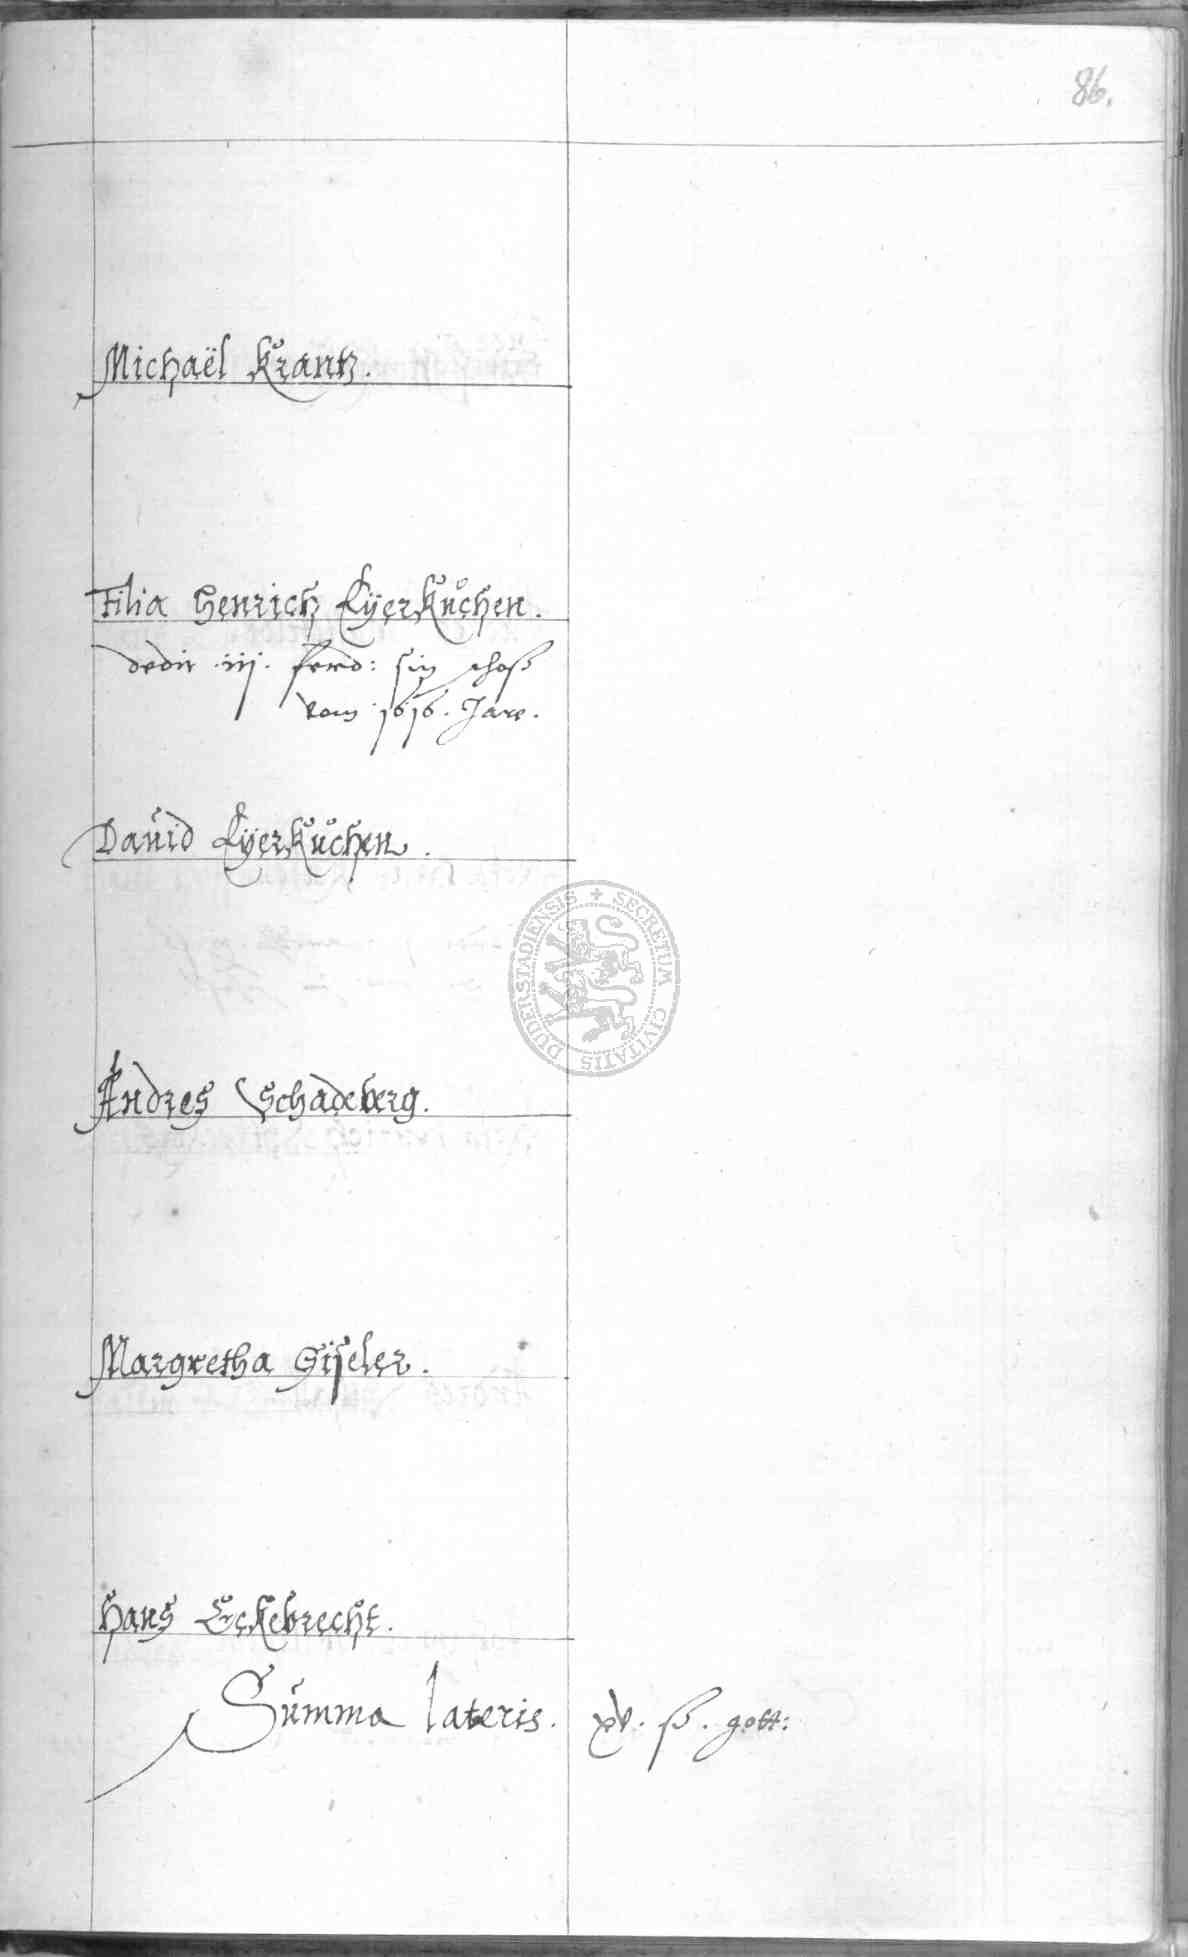 86.
Michaël Krantz.
Filia Henrich Eÿerkuchen.
dedit .iij. ferd: sin schoß
vom 1616. Jare.
Dauid Eÿerkuchen.
SECRETUM CIVITATIS DUDERSTADIENSIS
Andres Schadeberg.
Margretha Giseler.
Hans Eckebrecht.
Summa lateris. xv. ß. gott: